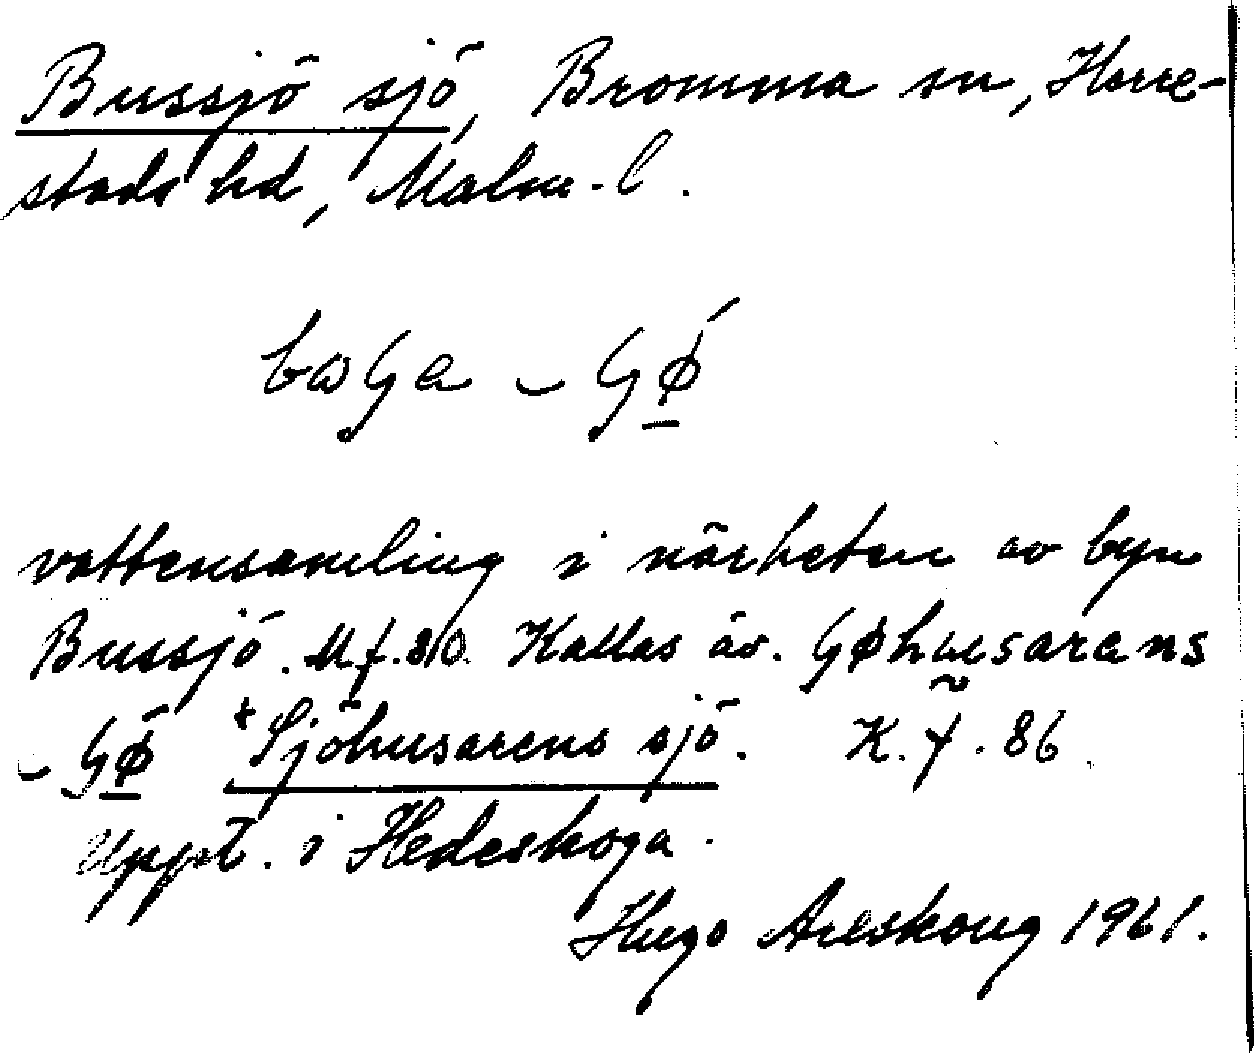 Bussjö sjö, Bromma sn, Herre-
stads hd, Malm. l.
vattensamling i närheten av byn
Bussjö. M f. 80. Kallas äv.
*Sjöhusarens sjö. K. f. 86
Uppt. i Hedeskoga.
Hugo Areskoug 1961.